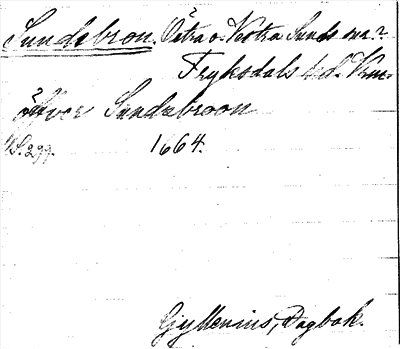 Sundsbron. Östra o. Vestra Sunds snr?
Fryksdals hd. Vrm.
Öfver Sundzbroon
S. 299. 1664.
Gyllenius, Dagbok.